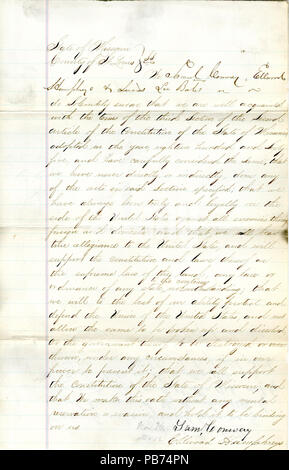 State of Missouri
County of St Louis } SS
We Saml Conway, Ellwood
Humphrys & Lewis Bates
do solemnly swear that we are well acquainted
with the terms of the third Section of the Second
article of the Constitution of the State of Missouri
adopted in the year eighteen hundred and Sixty
five and have carefully considered the same, that
we have never directly or indirectly done any
of the acts in said Section specified, that we
have always been truly and loyally on the
side of the United States against all enemies thereof
foreign and domestic and that we will bear
true allegiance to the United States and will
support the constitution and laws thereof as
the supreme law of the land, any law or
ordinance of any State to the contrary notwithstanding, that
we will to the best of our ability protect and
defend the Union of the United States and not
allow the same to be broken up and dissolved
or the government thereof to be destroyed or over
thrown, under any circumstances, if in our
power to prevent it, that we will support
the Constitution of the State of Missouri, and
that We make this oath without any mental
reservation or evasion, and hold it to be binding
on us
Saml Conway
Ellwood Humphrys
alamy
Image ID: PB74PN
www.alamy.com